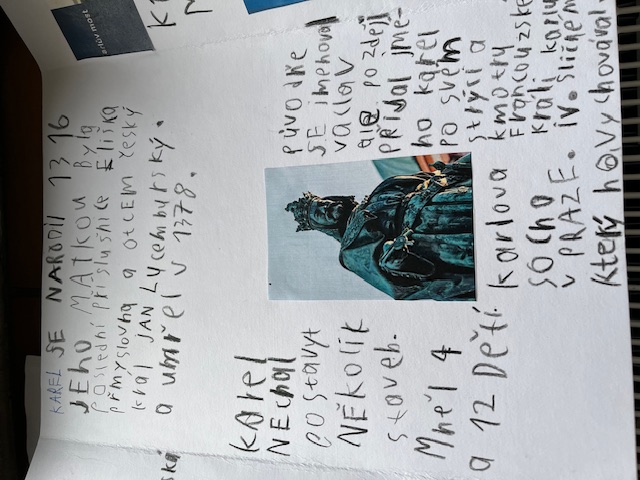 KAREL SE NARODIL 1316
JEHO MATKOU BYLA
POSLEDNÍ PŘÍSLUŠNICE ELIŠKA
PŘMYSLOVNA a OTCEM ČESKÝ
KRÁL JAN LUCEMBURSKÝ.
a uMŘEL V 1378.
Karel
NEchal
POSTAVYT
NĚKOLIK
staveb.
Mněl 4
a 12 Dětí.
PŮVODŇE
SE JMENOVAL
VACLAV
ale později
přijal jmé-
ho karel
po svém
strýci a
kmotry
Francouzské
králi karlu
iv. sličném
který ho vychovával
karlova
SOCHA
v PRAZE.
arlův most
ská